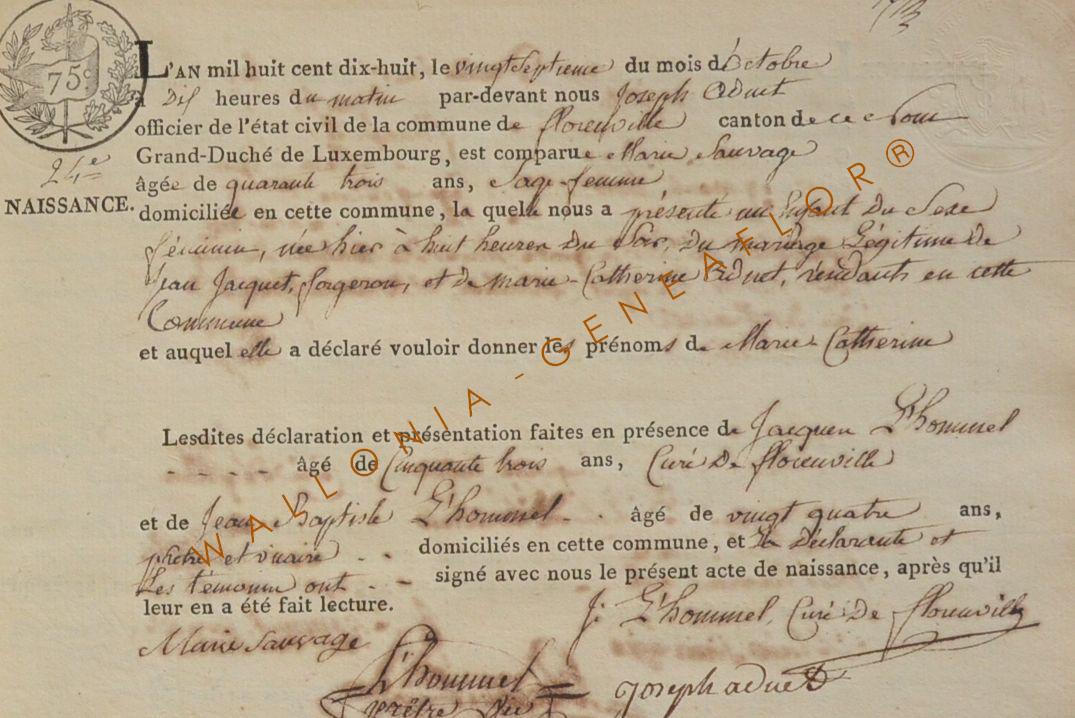 75c
L'AN mil huit cent dix-huit, le vingt Septieme du mois d'Octobre
à Dix heures du matin par-devant nous Joseph Adnet
officier de l'état civil de la commune de florenville canton de ce Nom
24e
Grand-Duché de Luxembourg, est comparue Marie Sauvage
âgée de quarante trois ans, Sage-femme
NAISSANCE.
domiciliée en cette commune, la quelle nous a présenté un Enfant du Sexe
féminin, née hier à huit heures du Soir, du mariage Légitime de
Jean Jacquet, forgeron, et de marie-Catherine Adnet, résidants en cette
Commune
et auquel elle a déclaré vouloir donner les prénoms de Marie Catherine
Lesdites déclaration et présentation faites en présence de Jacques L'hommel
âgé de Cinquante trois ans, Curé De florenville
et de Jean Baptiste L'hommel âgé de vingt quatre ans,
prêtre et vicaire domiciliés en cette commune, et la déclarante et
Les témoins ont signé avec nous le présent acte de naissance, après qu'il
leur en a été fait lecture.
J. L'hommel, Curé de florenville
Marie Sauvage
L'hommel
prêtre
joseph adnet
WALLONIA-GENEAFLOR®